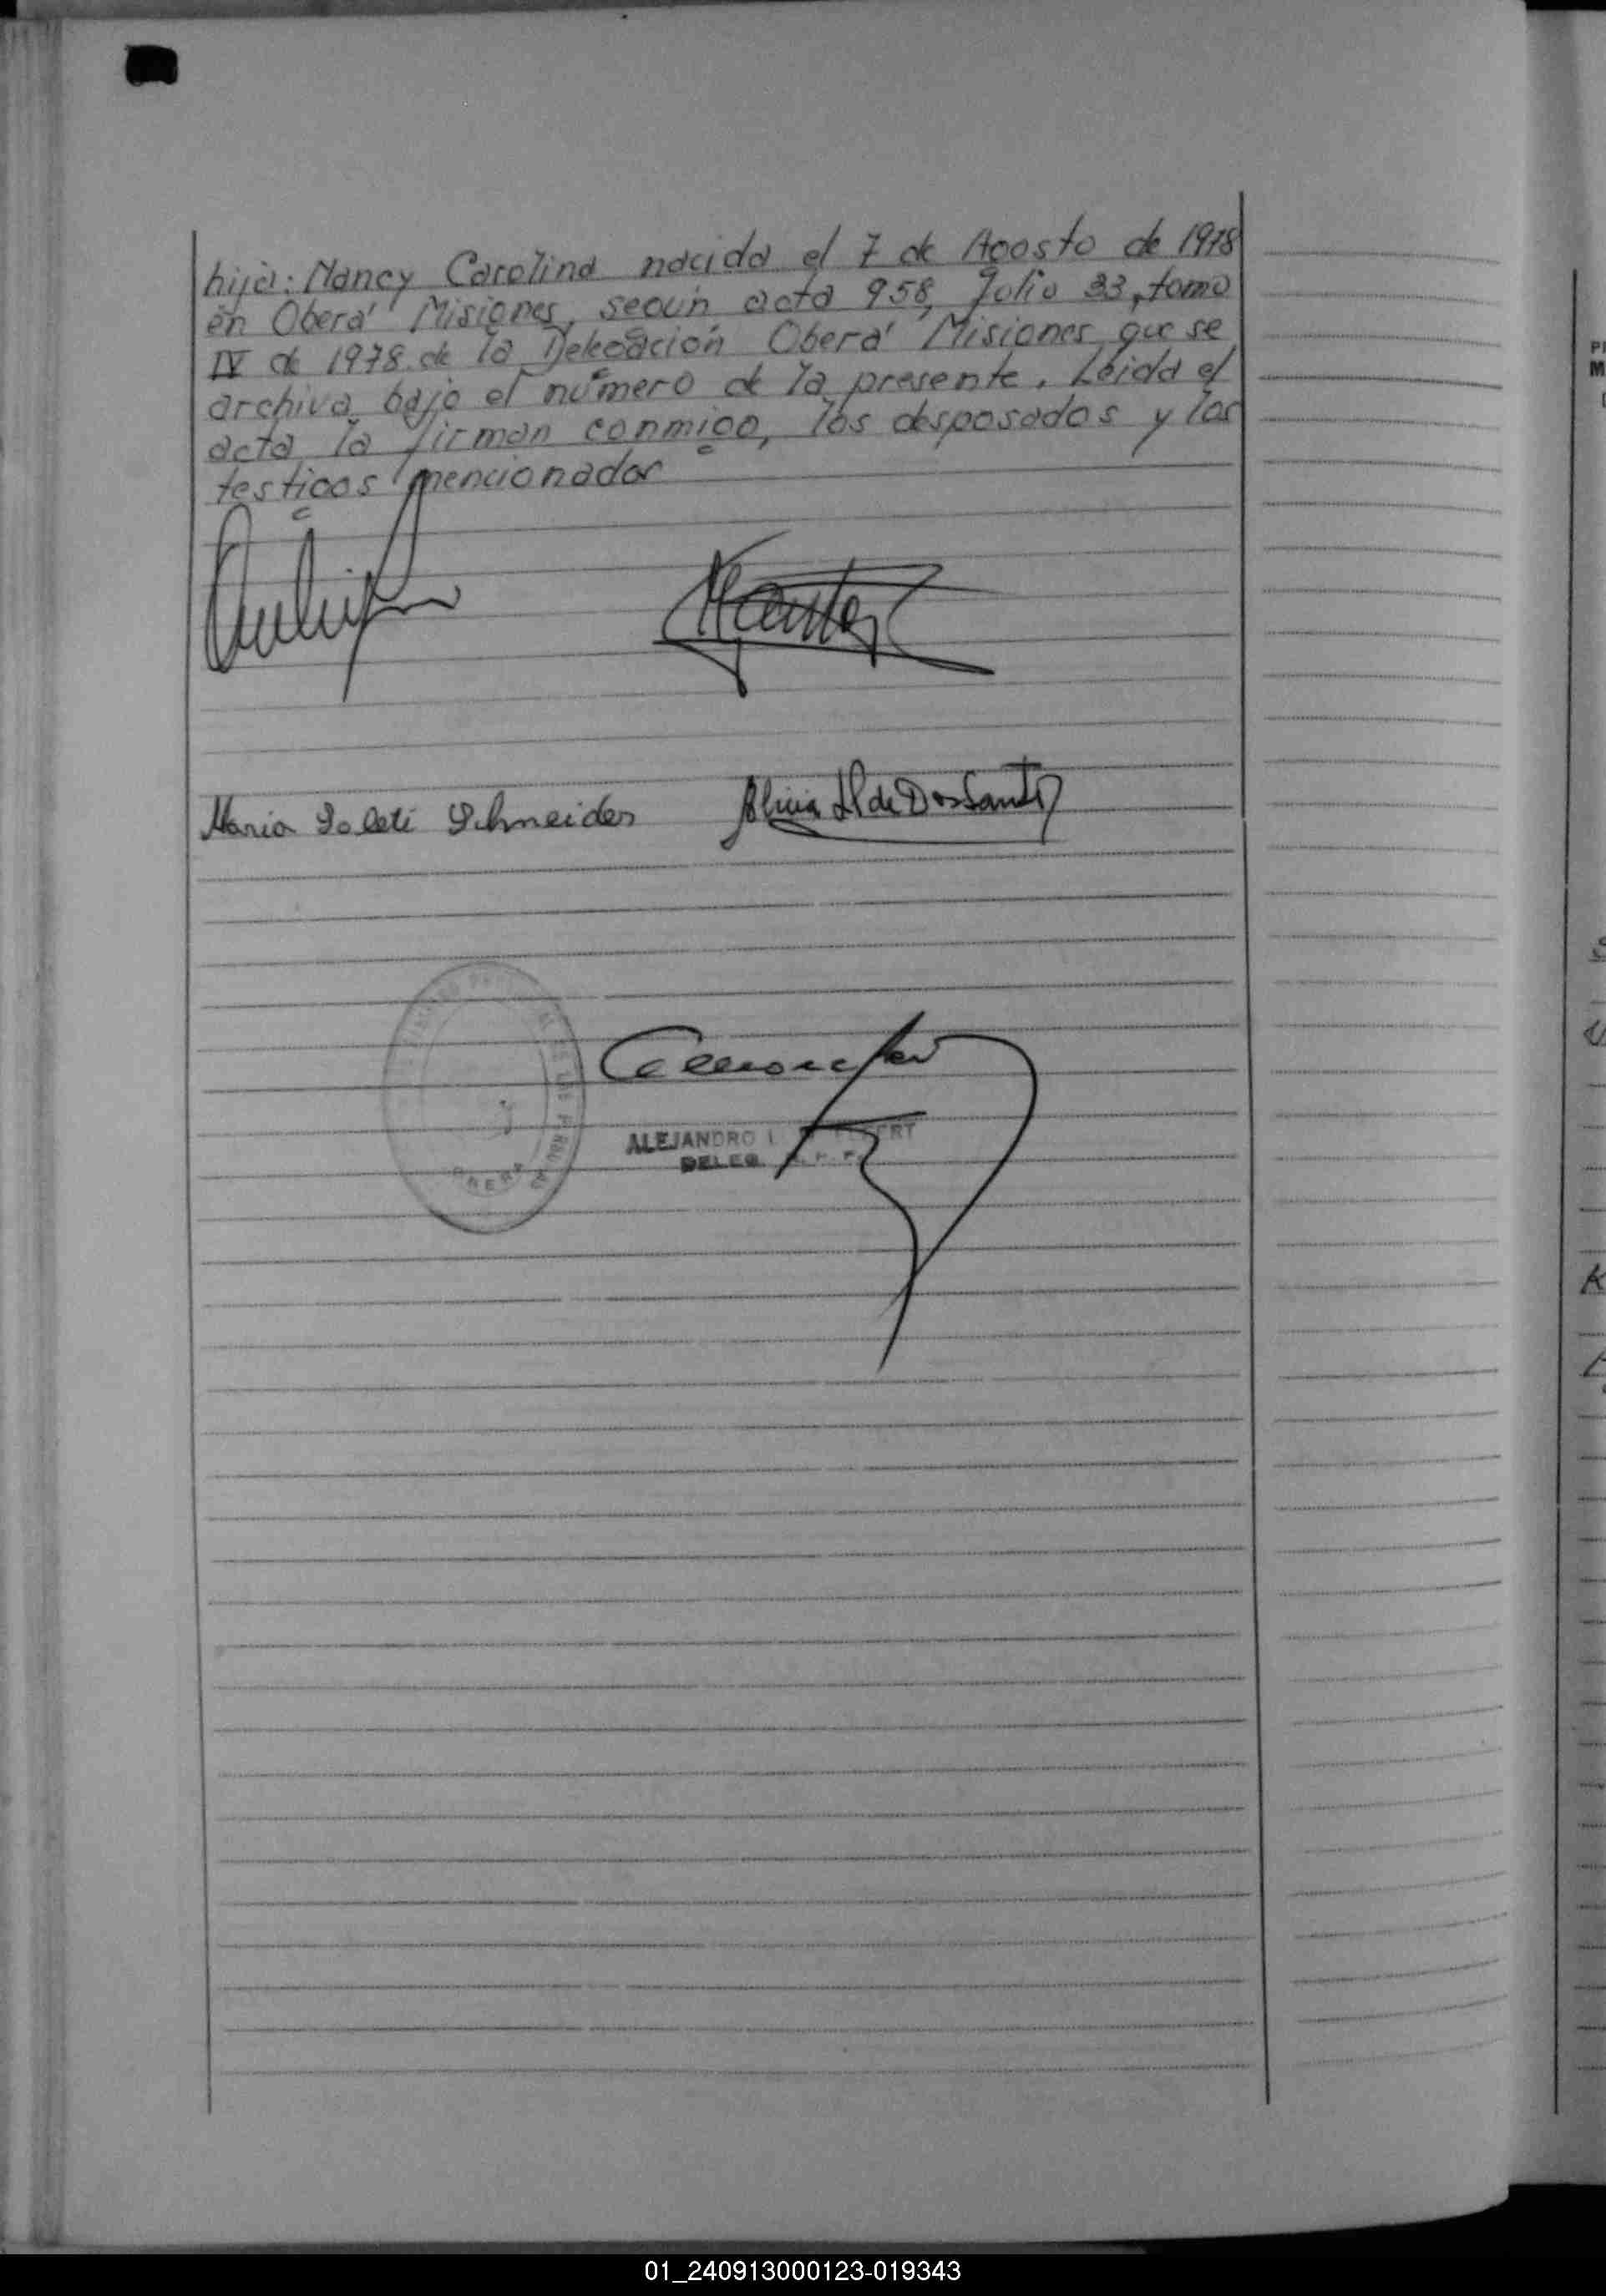 hija: Nancy Carolina nacida el 7 de Agosto de 1978
en Oberá Misiones, según acta 958, folio 33, tomo
IV de 1978. de la Delegación Oberá Misiones que se
archiva bajo el número de la presente. Leida el
acta la firman conmigo, los desposados y los
testigos mencionados
Maria Soleti Schneider Alicia H de Dos Santos
ALEJANDRO I.
DELEG. R. P. P.
01_240913000123-019343